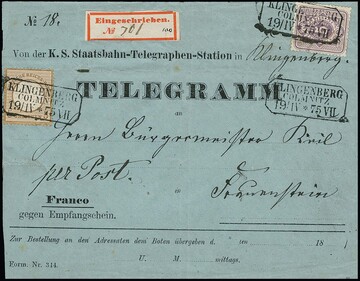 № 18.
Eingeschrieben.
№ 701
KLINGENBERG
COLMNITZ
19/IV * 75 VII
Von der K. S. Staatsbahn-Telegraphen-Station in Klingenberg.
TELEGRAMM
KLINGENBERG
COLMNITZ
19/IV * 75 VII
KLINGENBERG
COLMNITZ
19/IV * 75 VII.
an
Herrn Bürgermeister Keil
per Post.
in
Frauenstein
Franco
gegen Empfangschein.
Zur Bestellung an den Adressaten dem Boten übergeben d. ten 18
Form. Nr. 314. U. M. mittags.